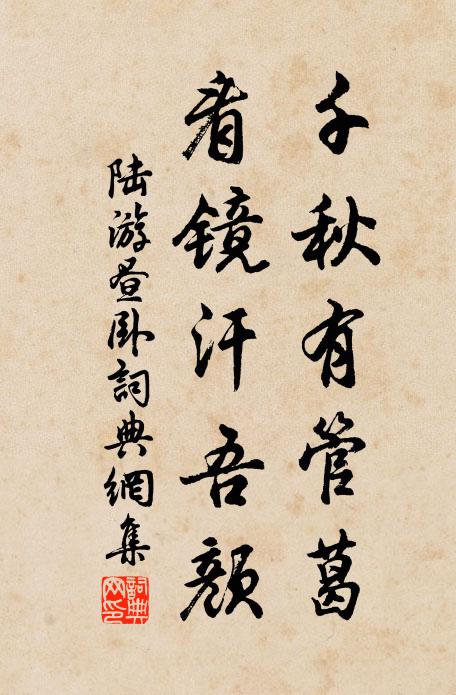 千秋有管葛
看镜汗吾颜
陆游昼卧詞典網集
詞典网印